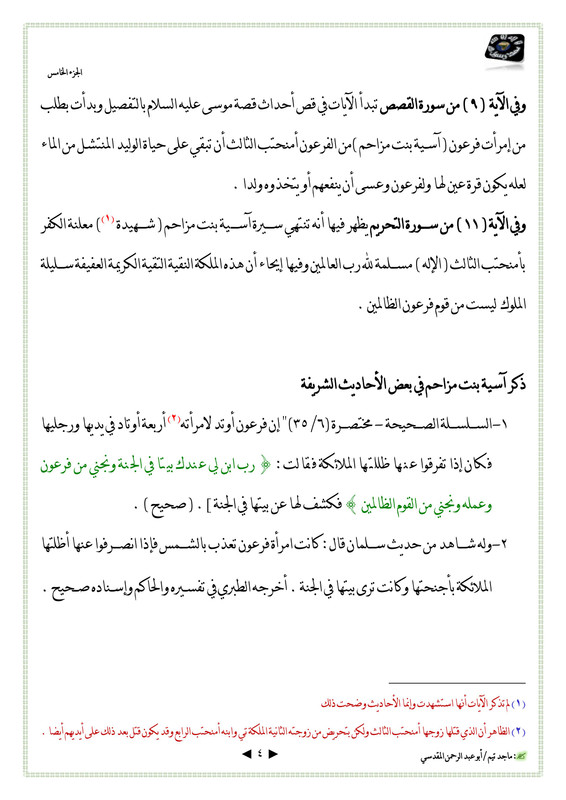 الجزء الخامس
وفي الآية ( ٩ ) من سورة القصص تبدأ الآيات في قص أحداث قصة موسى عليه السلام بالتفصيل وبدأت بطلب
من إمرأت فرعون ( آسية بنت مزاحم ) من الفرعون أمنحتب الثالث أن تبقي على حياة الوليد المنتشل من الماء
لعله يكون قرة عين لها ولفرعون وعسى أن ينفعهم أو يتخذوه ولدا .
وفي الآية ( ١١ ) من سورة التحريم يظهر فيها أنه تنتهي سيرة آسية بنت مزاحم ( شهيدة (١) ) معلنة الكفر
بأمنحتب الثالث ( الإله ) مسلمة لله رب العالمين وفيها إيحاء أن هذه الملكة النقية التقية الكريمة العفيفة سليلة
الملوك ليست من قوم فرعون الظالمين .
ذكر آسية بنت مزاحم في بعض الأحاديث الشريفة
١- السلسلة الصحيحة - مختصرة (٦/ ٣٥) " إن فرعون أوتد لامرأته (٢) أربعة أوتاد في يديها ورجليها
فكان إذا تفرقوا عنها ظللتها الملائكة فقالت : ﴿ رب ابن لي عندك بيتا في الجنة ونجني من فرعون
وعمله ونجني من القوم الظالمين ﴾ فكشف لها عن بيتها في الجنة ] . ( صحيح ) .
٢- وله شاهد من حديث سلمان قال : كانت امرأة فرعون تعذب بالشمس فإذا انصرفوا عنها أظلتها
الملائكة بأجنحتها وكانت ترى بيتها في الجنة . أخرجه الطبري في تفسيره والحاكم وإسناده صحيح .
(١) لم تذكر الآيات أنها استشهدت وإنما الأحاديث وضحت ذلك
(٢) الظاهر أن الذي قتلها زوجها أمنحتب الثالث ولكن بتحريض من زوجته الثانية الملكة تي وابنه أمنحتب الرابع وقد يكون قتل بعد ذلك على أيديهم أيضا .
: ماجد تيم / أبو عبد الرحمن المقدسي
◄ ٤ ►